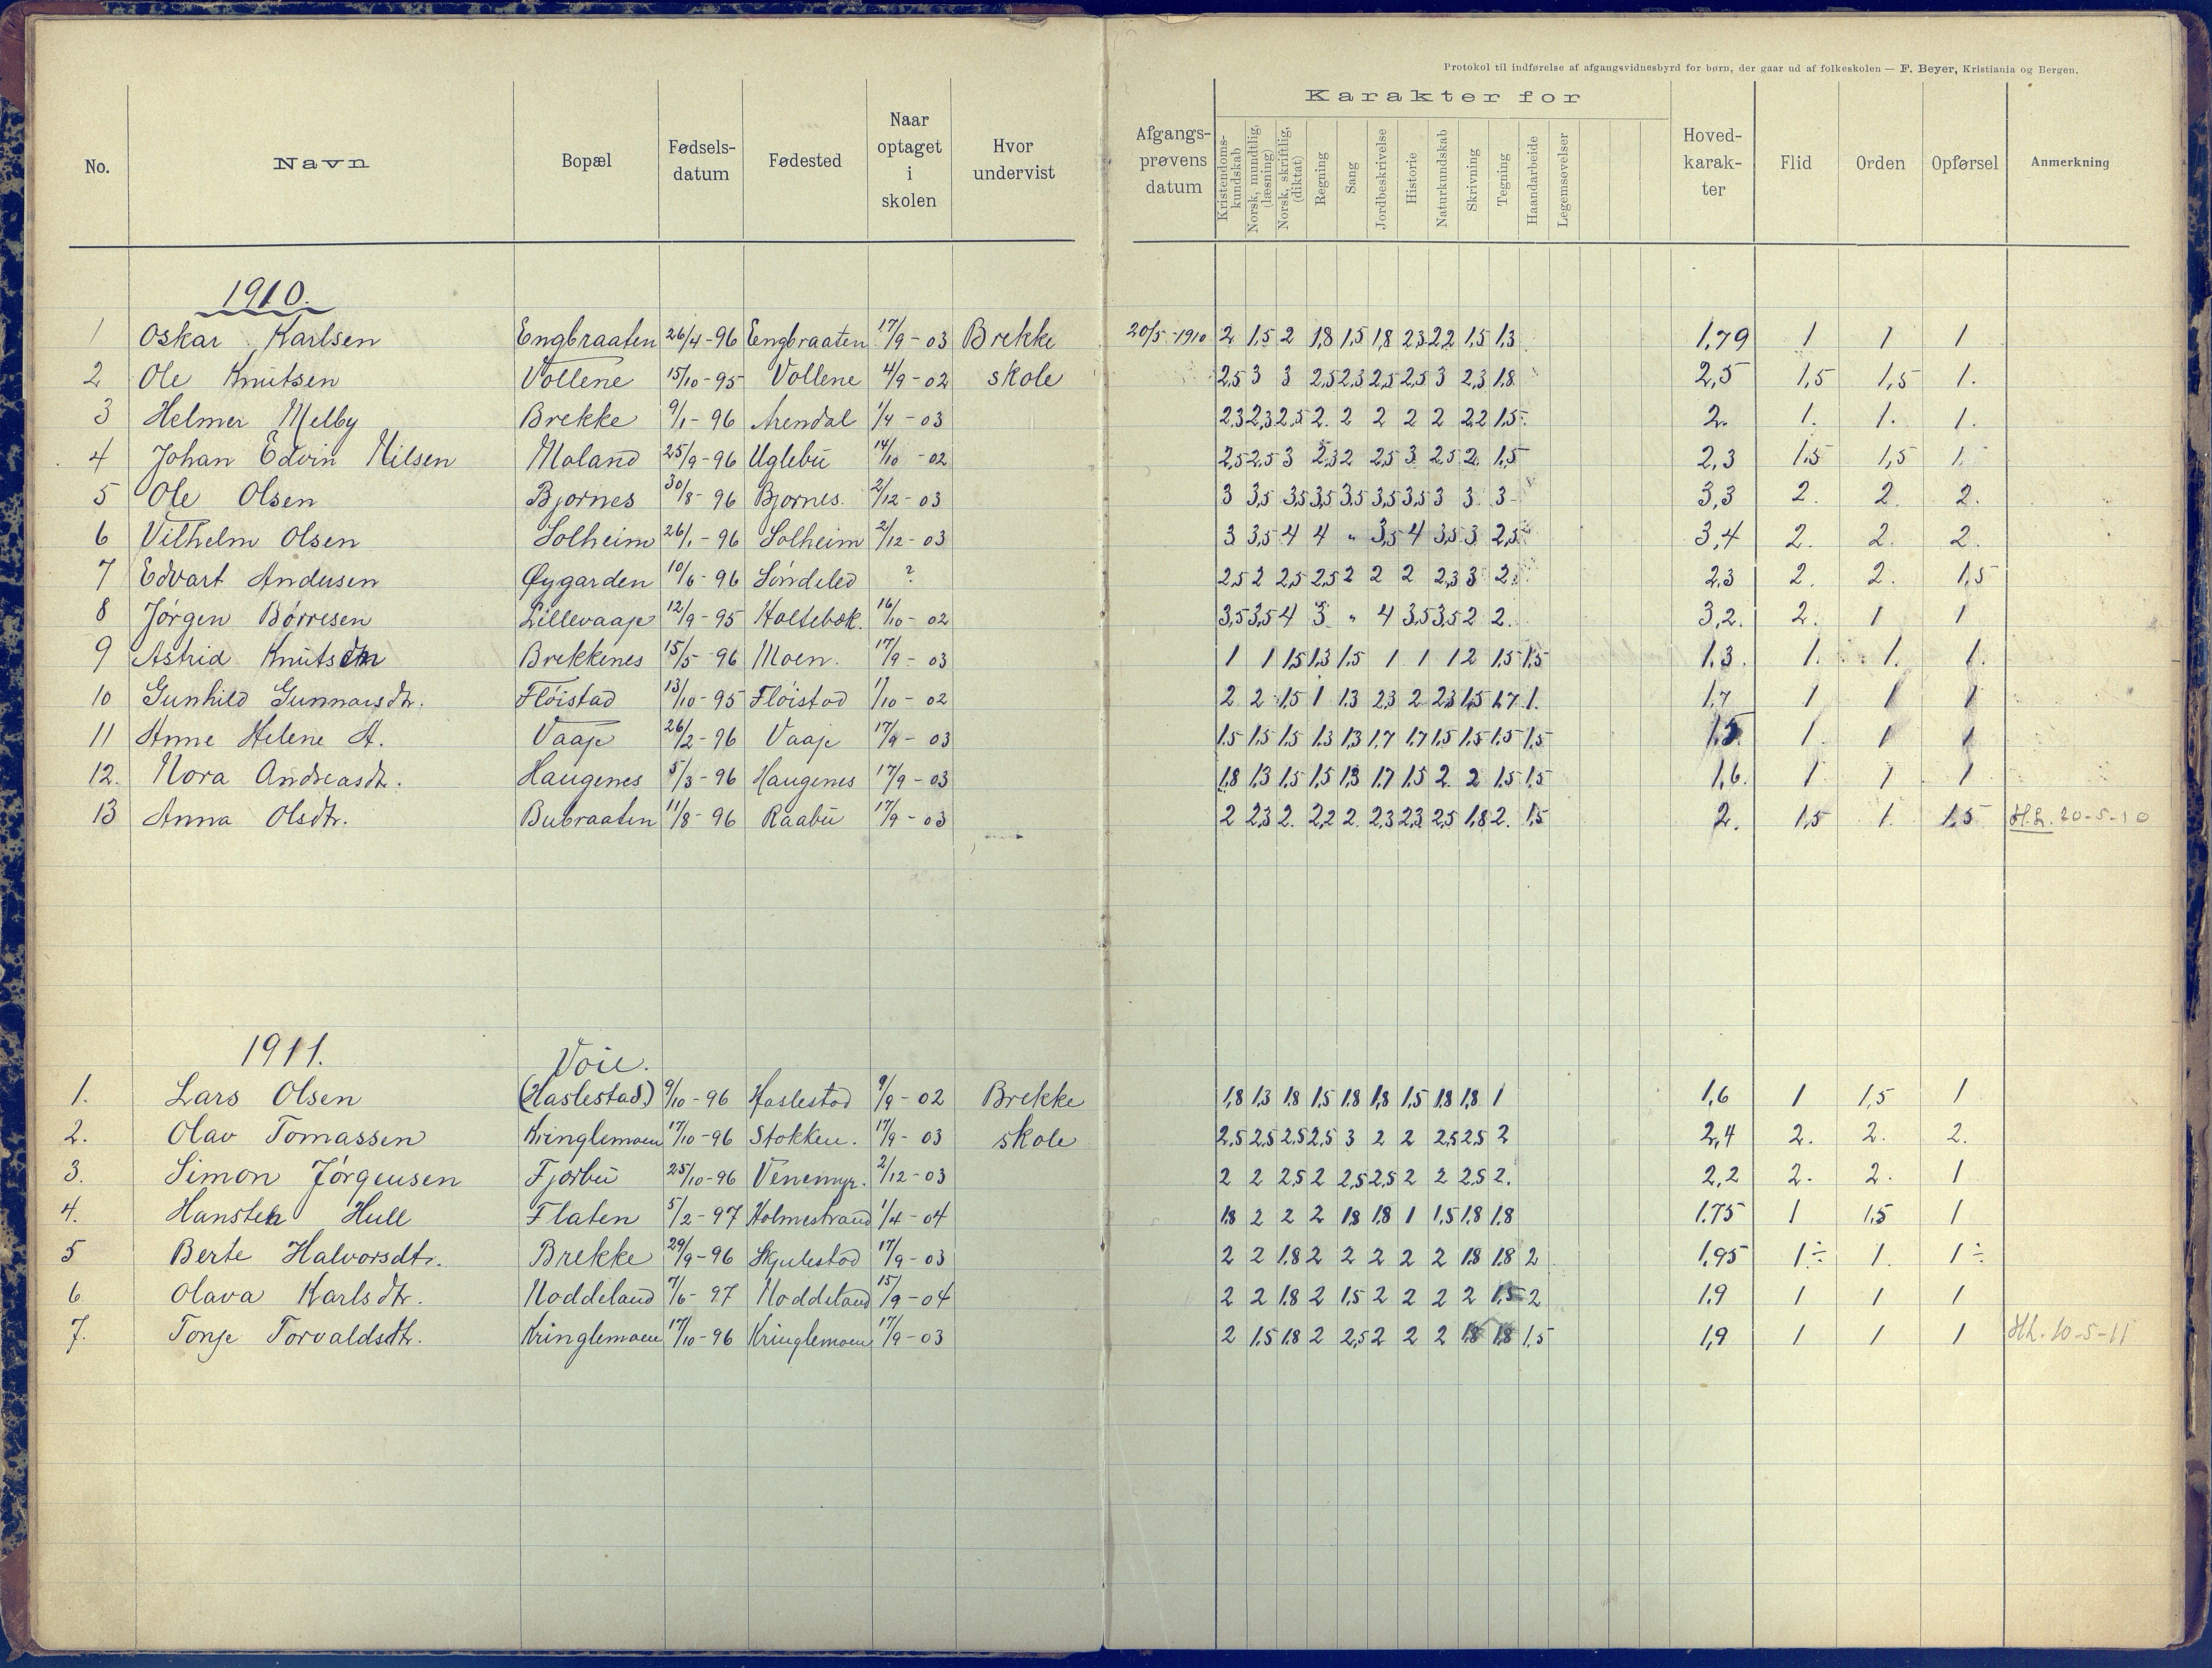 Protokol til indførelse af afgangsvidnesbyrd for børn, der gaar ud af folkeskolen — F. Beyer, Kristiania og Bergen.
No. Navn Bopæl Fødselsdatum Fødested Naar optaget i skolen Hvor undervist Afgangsprøvens datum Karakter for Kristendomskundskab Norsk, mundtlig, (læsning) Norsk, skriftlig, (diktat) Regning Sang Jordbeskrivelse Historie Naturkundskab Skrivning Tegning Haandarbeide Legemsøvelser Hovedkarakter Flid Orden Opførsel Anmerkning
1910.
1 Oskar Karlsen Engbraaten 26/4-96 Engbraaten 17/9-03 Brekke 20/5-1910 2 1,5 2 1,8 1,5 1,8 2,3 2,2 1,5 1,3 1,79 1 1 1
2 Ole Knutsen Vollene 15/10-95 Vollene 4/9-02 skole 2,5 3 3 2,5 2,3 2,5 2,5 3 2,3 1,8 2,5 1,5 1,5 1.
3 Helmer Melby Brekke 9/1-96 Arendal 1/4-03 2,3 2,3 2,5 2. 2 2 2 2 2,2 1,5 2. 1. 1. 1.
4 Johan Edvin Nilsen Moland 25/9-96 Uglebu 14/10-02 2,5 2,5 3 2,3 2 2,5 3 2,5 2. 1,5 2,3 1,5 1,5 1.
5 Ole Olsen Bjornes 30/8-96 Bjornes. 2/12-03 3 3,5 3,5 3,5 3,5 3,5 3,5 3 3. 3 3,3 2. 2. 2.
6 Vilhelm Olsen Solheim 26/1-96 Solheim 2/12-03 3 3,5 4 4 " 3,5 4 3,5 3 2,5 3,4 2. 2. 2.
7 Edvart Andersen Øygarden 10/6-96 Söndeled ? 2,5 2 2,5 2,5 2 2 2 2,3 3 2. 2,3 2. 2. 1,5
8 Jørgen Børresen Lillevaaje 12/9-95 Holtebæk. 16/10-02 3,5 3,5 4 3 " 4 3,5 3,5 2 2. 3,2. 2. 1 1
9 Astrid Knutsdtr Brekkenes 15/5-96 Moen. 17/9-03 1 1 1,5 1,3 1,5 1 1 1 2 1,5 1,5 1.3. 1. 1. 1.
10 Gunhild Gunnarsdtr. Fløistad 13/10-95 Fløistad 1/10-02 2 2 1,5 1 1.3 2,3 2 2,3 1,5 1,7 1. 1,7 1 1 1
11 Anne Helene A. Vaaje 26/2-96 Vaaje 17/9-03 1.5 1,5 1,5 1.3 1,3 1,7 1,7 1,5 1,5 1,5 1,5 1.5. 1. 1 1
12. Nora Andreasdtr. Haugenes 5/3-96 Haugenes 17/9-03 1,8 1,3 1,5 1,5 1,3 1,7 1,5 2. 2 1,5 1,5 1,6. 1 1 1
13 Anna Olsdtr. Bubraaten 11/8-96 Raabu 17/9-03 2 2,3 2. 2,2 2. 2,3 2,3 2,5 1,8 2. 1,5 2. 1,5 1. 1.5 H.L. 20-5-10
1911.
Voie.
1. Lars Olsen (Haslestad) 9/10-96 Haslestad 9/9-02 Brekke 1,8 1,3 1,8 1,5 1,8 1,8 1,5 1,8 1,8 1 1,6 1 1,5 1
2. Olav Tomassen Kringlemoen 17/10-96 Stokken. 17/9-03 skole 2,5 2,5 2,5 2,5 3 2 2 2,5 2,5 2 2,4 2. 2. 2.
3. Simon Jørgensen Fjærbu 25/10-96 Venemyr. 2/12-03 2 2 2,5 2 2,5 2,5 2 2 2,5 2. 2,2 2. 2. 1
4. Hansteen Hull Flaten 5/2-97 Holmestrand 1/4-04 1.8 2 2 2 1,8 1,8 1 1,5 1.8 1.8 1.75 1 1,5 1
5 Berte Halvorsdtr. Brekke 29/9-96 Skjulestad 17/9-03 2 2 1.8 2 2 2 2 2 1,8 1,8 2 1,95 1÷ 1. 1÷
6. Olava Karlsdtr. Noddeland 7/6-97 Noddeland 15/9-04 2 2 1.8 2 1,5 2 2 2 2 1,5 2 1.9 1 1 1
7. Tonje Torvaldsdtr. Kringlemoen 17/10-96 Kringlemoen 17/9-03 2 1,5 1.8 2 2,5 2 2 2 1.8 1,8 1,5 1,9 1 1 1 H.L. 10-5-11